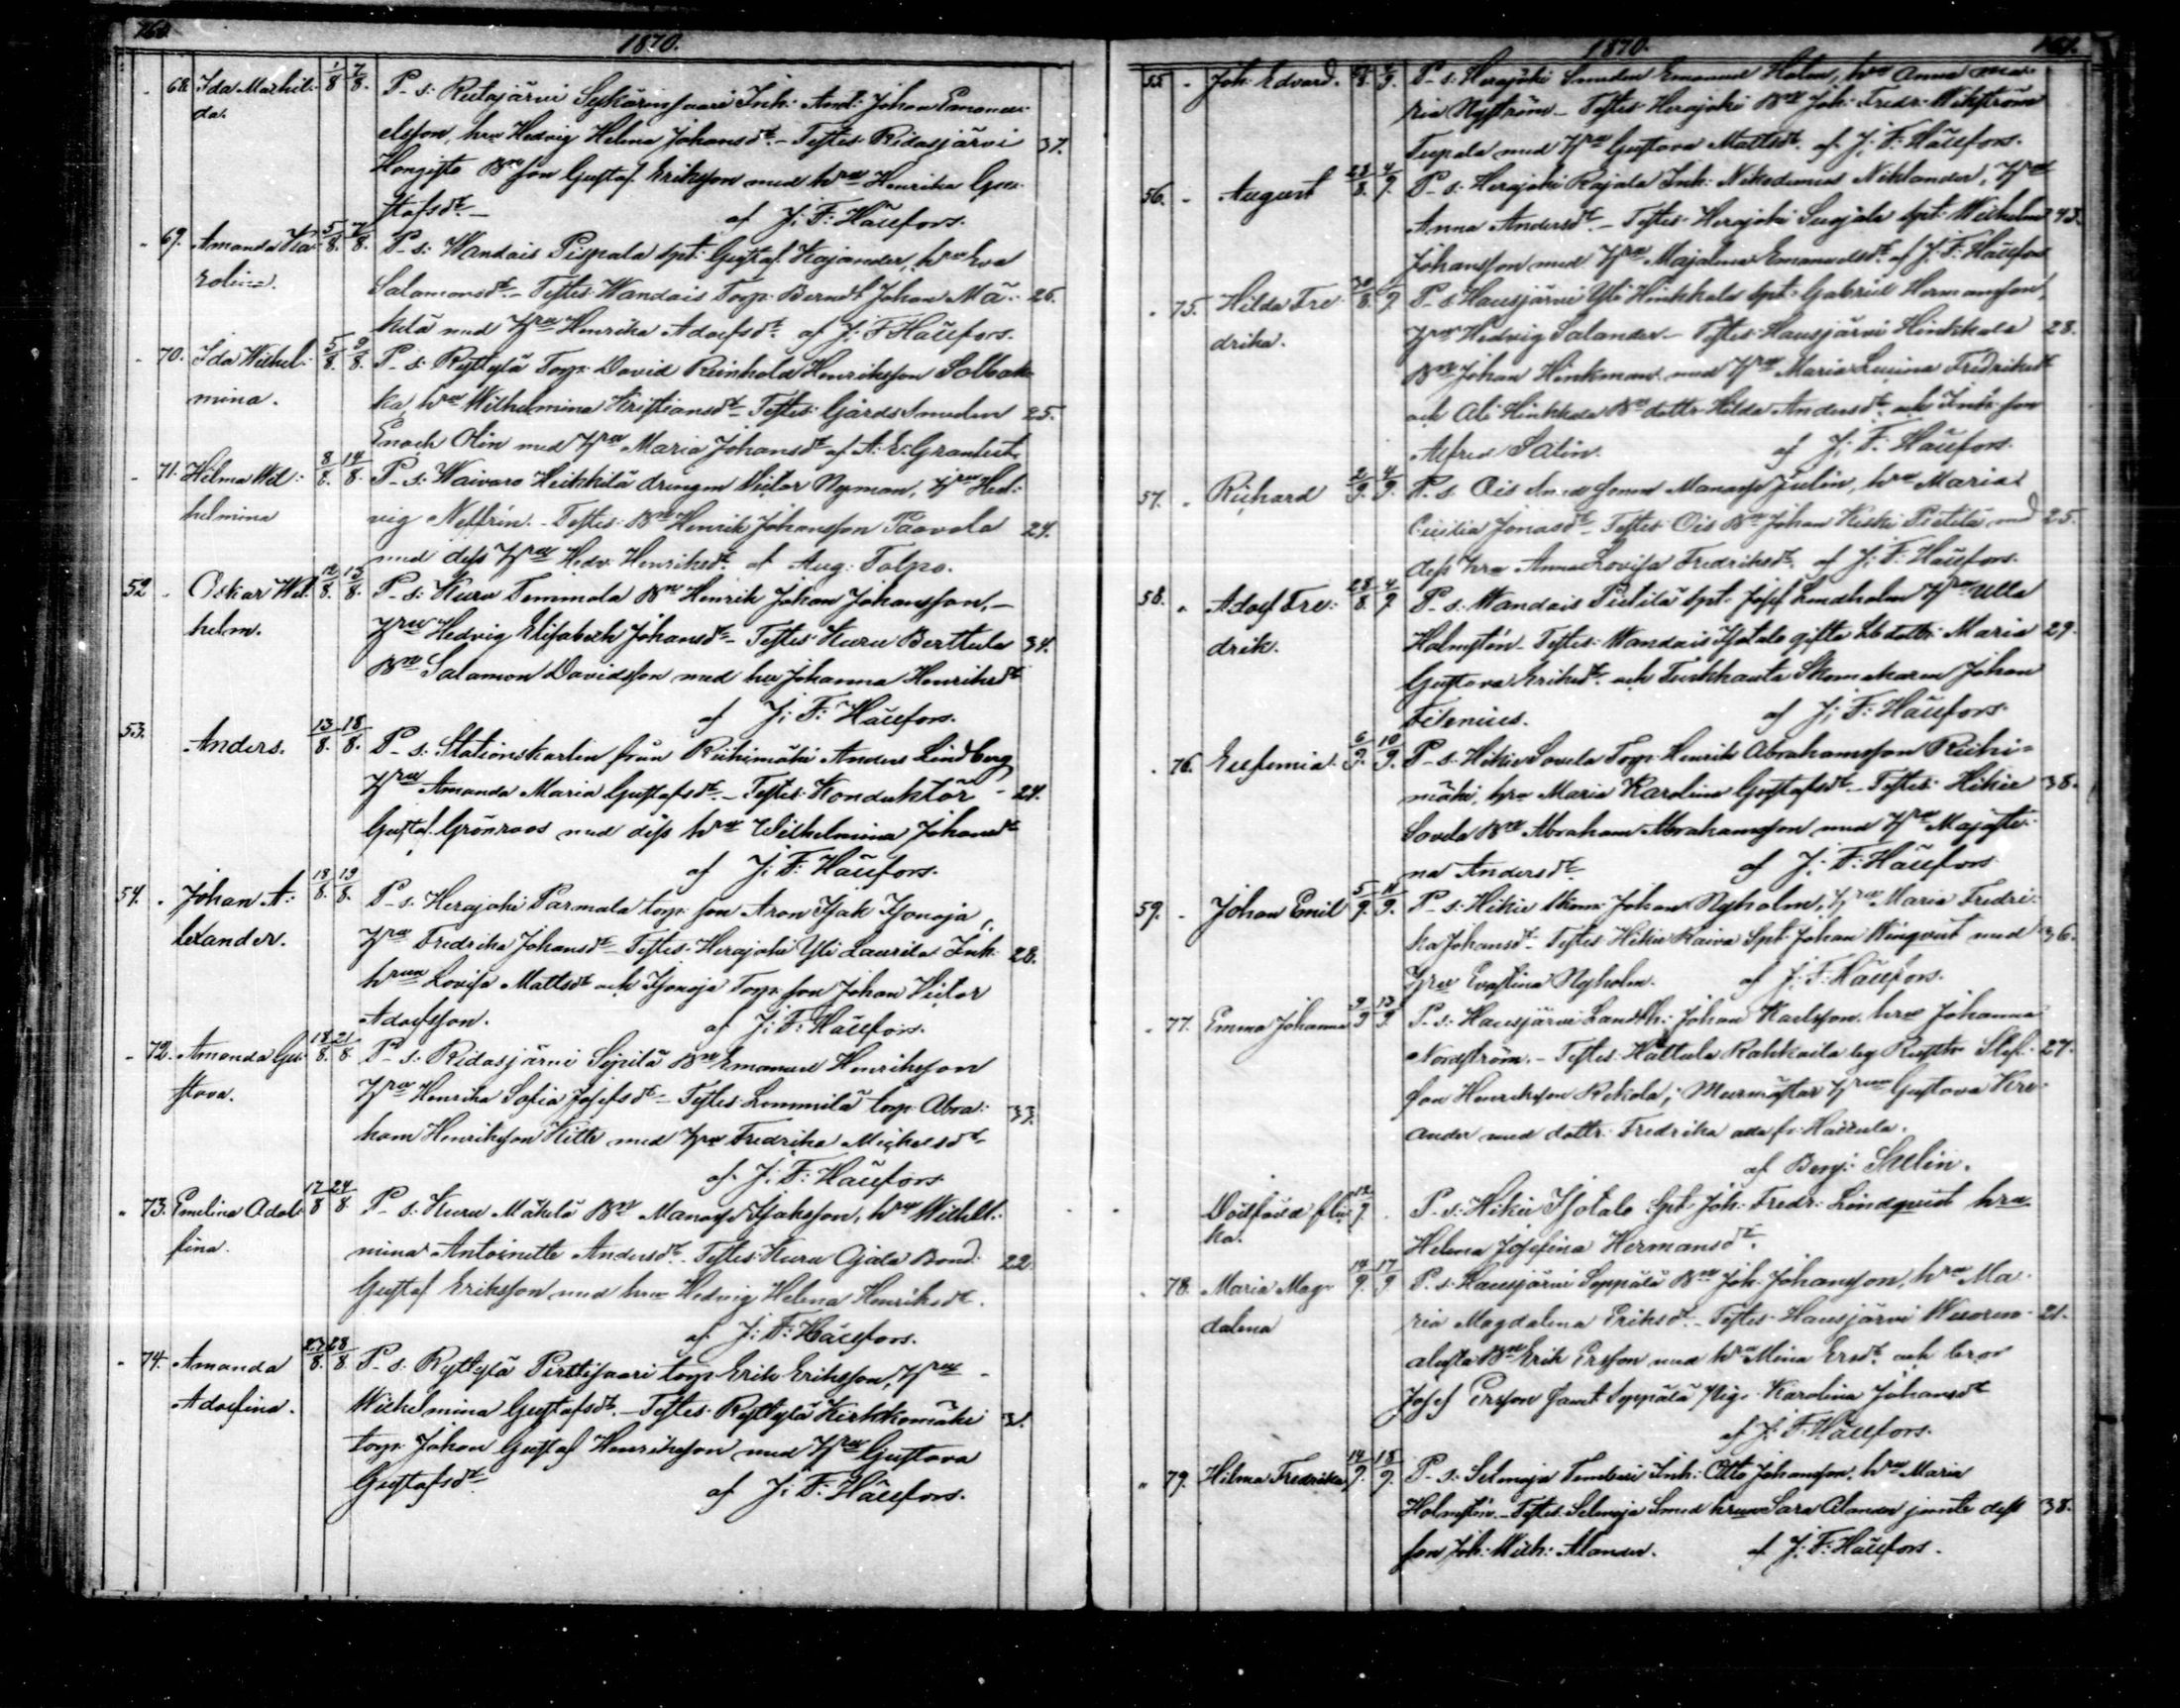 160.
1870.
68. Ida Mathil- 1/8 7/8. P. s: Ridasjärvi Inh: Johan Emanu-
da. elsson, hru Hedvig Helena Johansdr. – Testes: Ridasjärvi 37.
Hongisto Bde son Gustaf Eriksson med hru Henrika Gu-
stafsdr. – af J: F: Hällfors.
69. Amanda Ka- 5/8. 7/8. P. s: Wandais Pispala spt: Gustaf Kajander, hru Eva
rolina. Salamonsdr. – Testes: Wandais Torp: Berndt Johan Mä- 26.
kelä med Hru Henrika Adolfsdr. af J: F: Hällfors.
70. Ida Wilhel- 5/8. 9/8. P. s: Ryttylä Torp: David Reinhold Henriksson Solbac-
mina. ka, hru Wilhelmina Kristiansdr. – Testes: Gårds Smeden 25.
Enoch Olin med Hru Maria Johansdr. af A: E: Granlund.
71. Hilma Wil- 8/8. 14/8. P. s: Waivaro Heikkilä drengen Victor Nyman, Hru Hed-
helmina vig Neffrin. – Testes: Bde Henrik Johansson Paavola 24.
med dess Hru Hedv: Henriksdr. af Aug: Talpo.
52 Oskar Wil- 12/8. 13/8. P. s: Kuru Temmola Bde Henrik Johan Johansson, –
helm. Hru Hedvig Elisabeth Johansdr. – Testes: Kuru Berttula 34.
Bde Salamon Davidsson med hru Johanna Henriksdr.
af J: F: Hällfors.
53. Anders. 13/8. 18/8. P. s: Stationskarlen från Riihimäki Anders Lindberg
Hru Amanda Maria Gustafsdr. – Testes: Konduktör 24.
Gustaf Grönroos med dess hru Wilhelmina Johansdr.
af J: F: Hällfors.
54. Johan A- 18/8. 19/8. P. s: Herajoki Parmala torp: son Aron Isak Isonoja,
lexander. Hru Fredrika Johansdr. – Testes: Herajoki Yli Laurila Inh: 28.
hrun Lovisa Mattsdr. och Isonoja Torp: son Johan Victor
Adolfsson. af J: F: Hällfors.
72. Amanda Gu- 18/8. 21/8. P. s: Ridasjärvi Sipilä Bde Emanuel Henriksson
stava. Hru Henrika Sofia Josefsdr. – Testes: Lemmilä torp: Abra- 33.
ham Henriksson Kille med Hru Fredrika Michelsdr.
af J: F: Hällfors
73. Emelina Adol- 17/8 24/8. P. s: Kuru Mäkelä Bde Manasse Isaksson, hru Wilhel-
fina. mina Antoinette Andersdr. – Testes: Kuru Ojala Bond: 22.
Gustaf Eriksson med hru Hedvig Helena Henriksdr.
af J: F: Hällfors.
74. Amanda 27/8. 28/8. P. s: Ryttylä Perttisaari torp: Erik Eriksson, Hru
Adolfina. Wilhelmina Gustafsdr. – Testes: Ryttylä Kirkkomäki 31.
torp: Johan Gustaf Henriksson med Hru Gustava
Gustafsdr. af J: F: Hällfors.
1870.
161.
55. Joh: Edvard. P. s: Herajoki Smeden Emanuel Holm, hru Anna Ma-
ria Nyström – Testes: Herajoki Bde Joh: Fredr: Wikström
Teepala med Hru Gustava Mattsdr. af J: F: Hällfors.
56. August 28/8. 4/9. P. s: Herajoki Rajala Inh: Nikodemus Niklander, Hru
Anna Andersdr. – Testes: Herajoki Suojala spt: Wilhelm 43.
Johansson med Hru Majalena Emanuelsdr. af J: F: Hällfors
75. Hilda Fre- P. s: Hausjärvi Yli Hinkkala spt: Gabriel Hermansson,
drika. Hru Hedvig Salander – Testes: Hausjärvi Hinkkala 28.
Bde Johan Hinkman med Hru Maria Lucina Fredriksdr.
och Ali Hinkkala Bde dottr: Hilda Andersdr. och Inh: son
Alfred Salin. af J: F: Hällfors.
57. Richard 2/9. 4/9. P. s: Ois Manasse Julin, hru Maria
Cecilia Jonasdr. – Testes: Ois Bde Johan Keski Pietilä med 25.
dess hru Anna Lovisa Fredriksdr. af J: F: Hällfors.
58. Adolf Fre- 28/8. 4/9. P. s: Wandais Pietilä spt: Josef Lindholm Hru Ulla
drik. Holmstén – Testes: Wandais Isotalo gifta dottr: Maria 29.
Gustava Eriksdr. och Turkhauta Skomakaren Johan
Filenius. af J: F: Hällfors.
76. Eufemia. 6/9. 10/9. P. s: Hikie Sovela Torp: Henrik Abrahamsson Riihi-
mäki, hru Maria Karolina Gustafsdr. – Testes: Hikie 38.
Sovela Bde Abraham Abrahamsson med Hru Majasti-
na Andersdr. af J: F: Hällfors
59. Johan Emil 5/9. 11/9. P. s: Hikie Johan Nyholm, Hru Maria Fredri-
ka Johansdr. – Testes: Hikie Kaiva Spt: Johan Winqvist med 36.
Hru Evastina Nyholm. af J: F: Hällfors.
77. Emma Johanna 9/9 13/9. P. s: Hausjärvi Landth: Johan Karlsson, hru Johanna
Nordström. – Testes: Hattula Rahkoila Stef- 27.
fan Henriksson Rekola, Murmästar Hrun Gustava Kre-
ander med dottr: Fredrika
af Benj: Skelin.
Dödfödd fli- 12/9. P. s: Hikie Isotalo Spt: Joh: Fredr: Lindqvist hru
ka. Helena Josefina Hermansdr.
78. Maria Mag- 14/9. 17/9. P. s: Hausjärvi Seppälä Bde Joh: Johansson, hru Ma-
dalena ria Magdalena Eriksdr. – Testes: Hausjärvi Wuoren- 21.
alusta Bde Erik Ersson med hru Mina Ersdr. och bror
Josef Ersson samt Seppälä Pig: Karolina Johansdr
af J: F: Hällfors.
79. Hilma Fredrika 14/9. 18/9. P. s: Selänoja Inh: Otto Johansson, hru Maria
Holmstén. – Testes: Selänoja Smed hrun Sara Alander jemte dess 38.
son Joh: Wilh: Alander. af J: F: Hällfors.